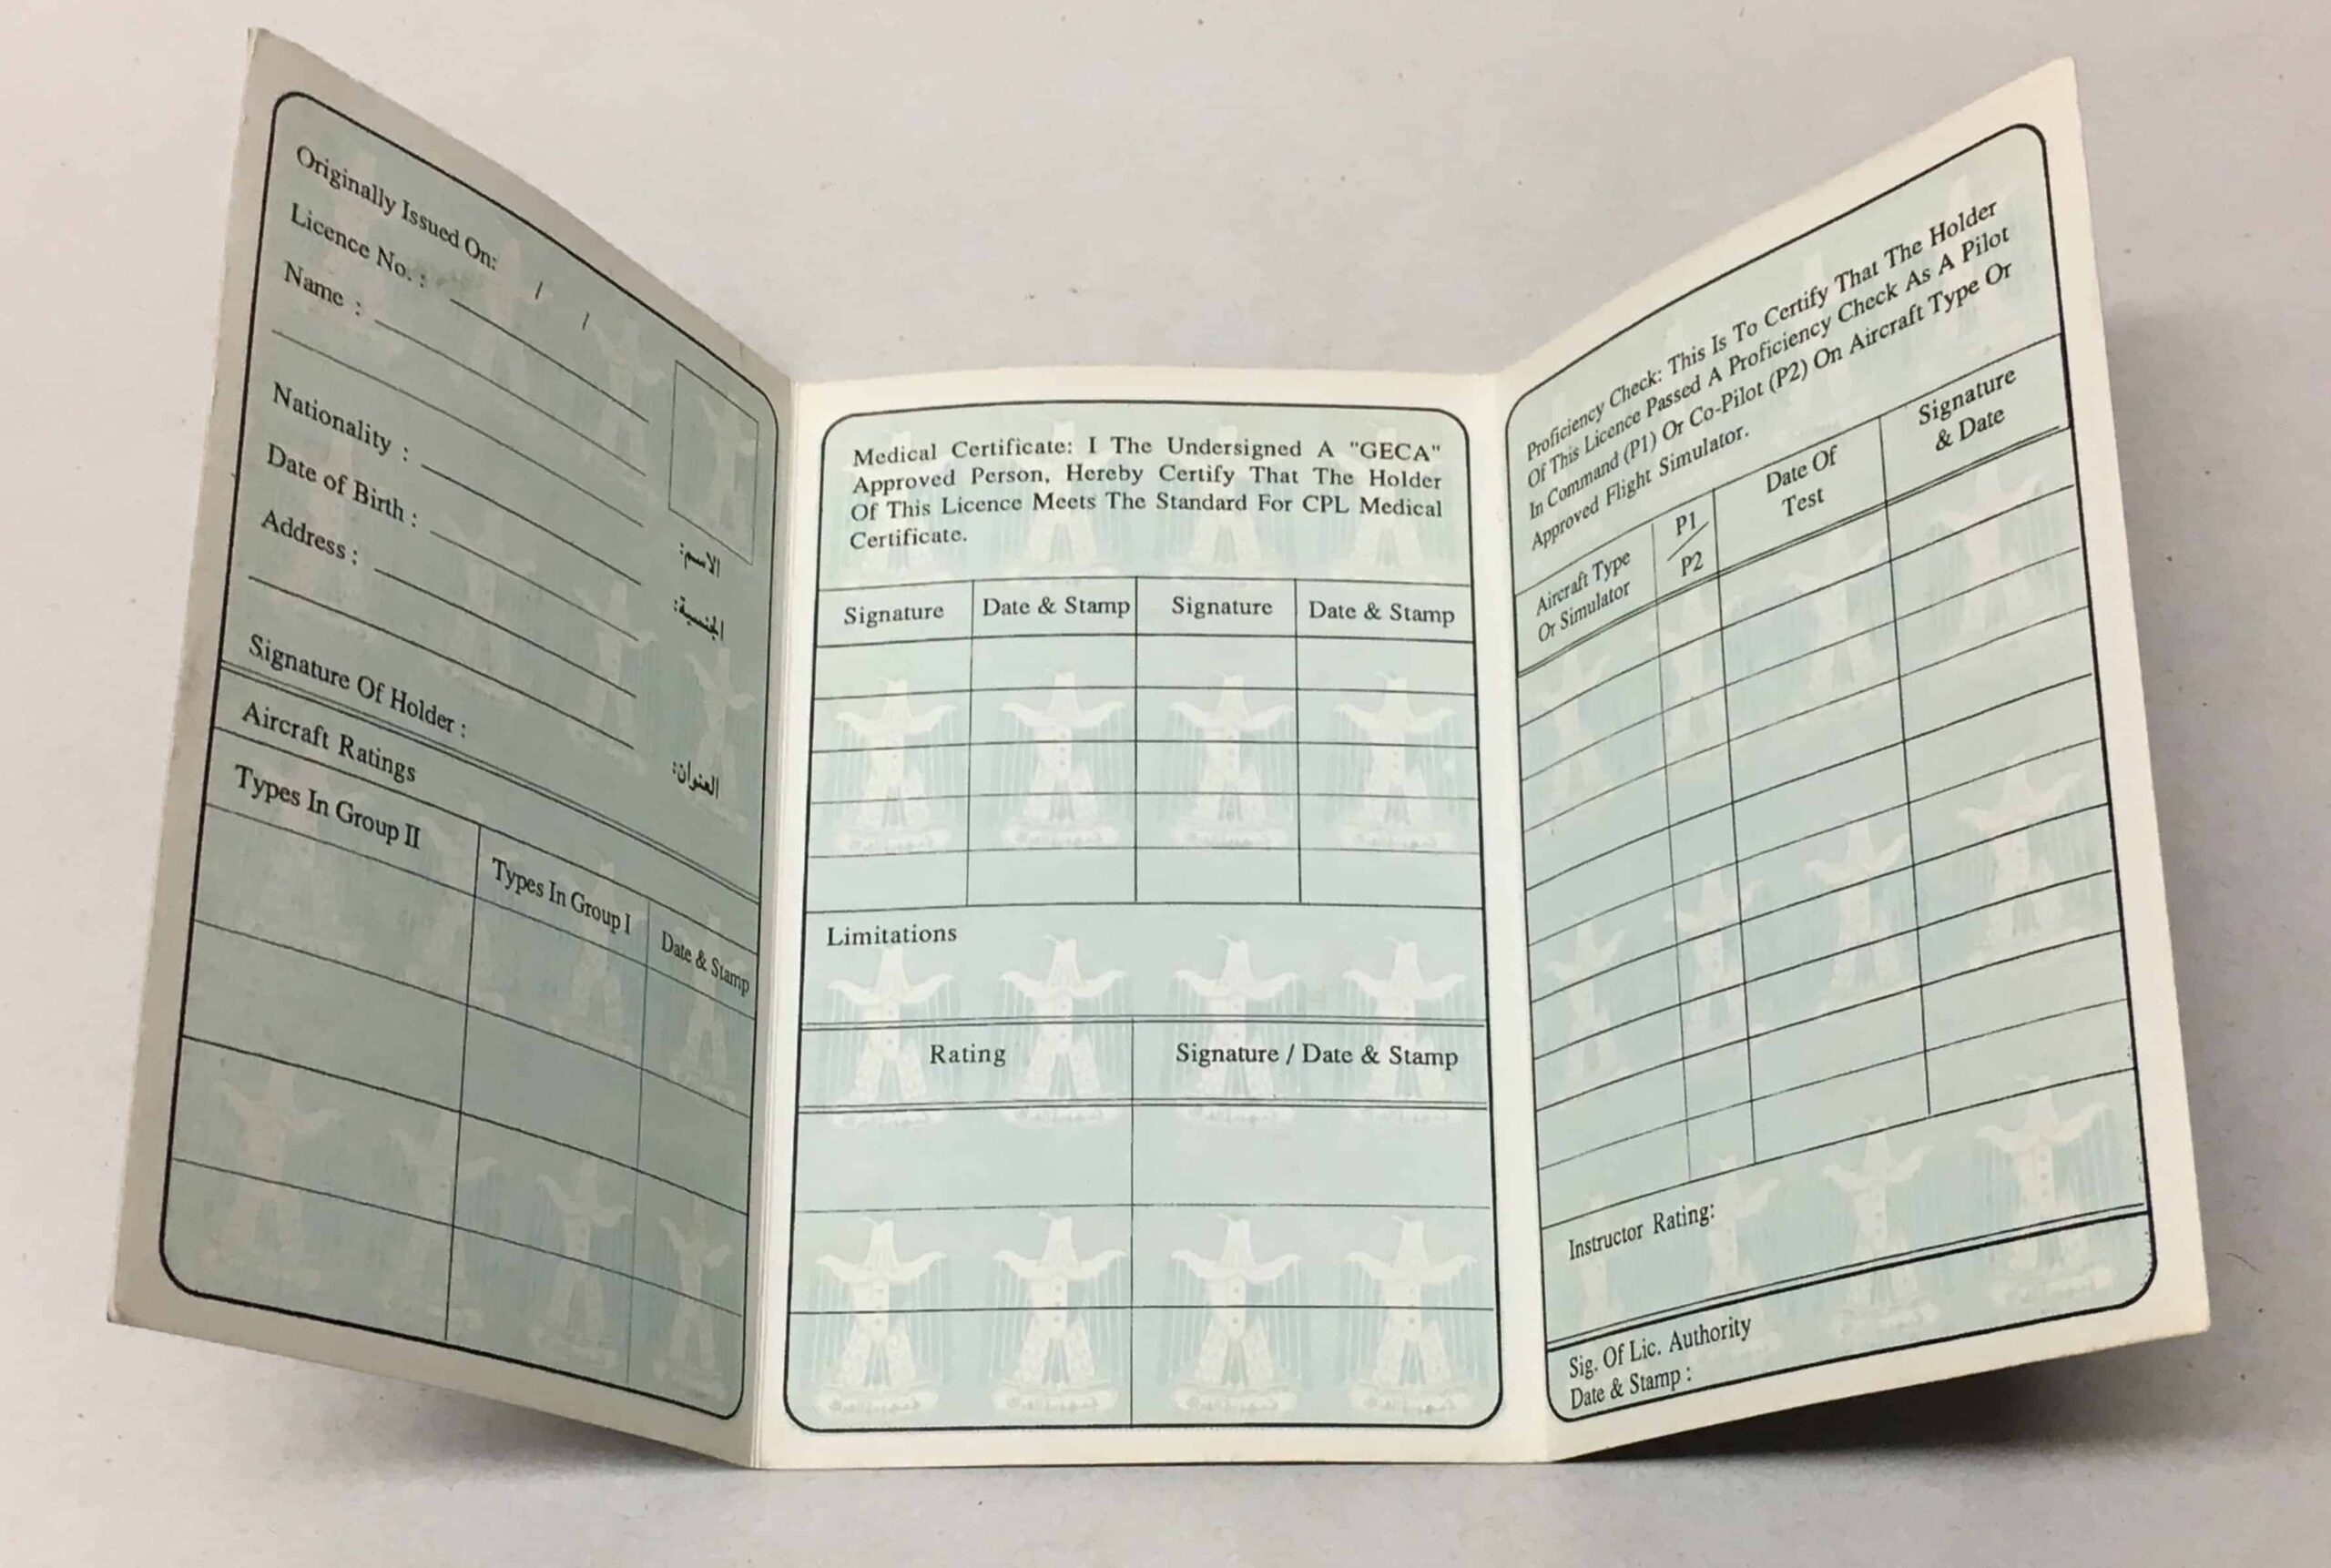 Originally Issued On: / /
Licence No. :
Name :
الاسم:
Nationality :
الجنسية:
Date of Birth :
Address :
العنوان:
Signature Of Holder :
Aircraft Ratings
Types In Group II
Types In Group I
Date & Stamp
Medical Certificate: I The Undersigned A "GECA"
Approved Person, Hereby Certify That The Holder
Of This Licence Meets The Standard For CPL Medical
Certificate.
Signature Date & Stamp Signature Date & Stamp
Limitations
Rating Signature / Date & Stamp
Proficiency Check: This Is To Certify That The Holder
Of This Licence Passed A Proficiency Check As A Pilot
In Command (P1) Or Co-Pilot (P2) On Aircraft Type Or
Approved Flight Simulator.
Aircraft Type
Or Simulator
P1
/
P2
Date Of
Test
Signature
& Date
Instructor Rating:
Sig. Of Lic. Authority
Date & Stamp :